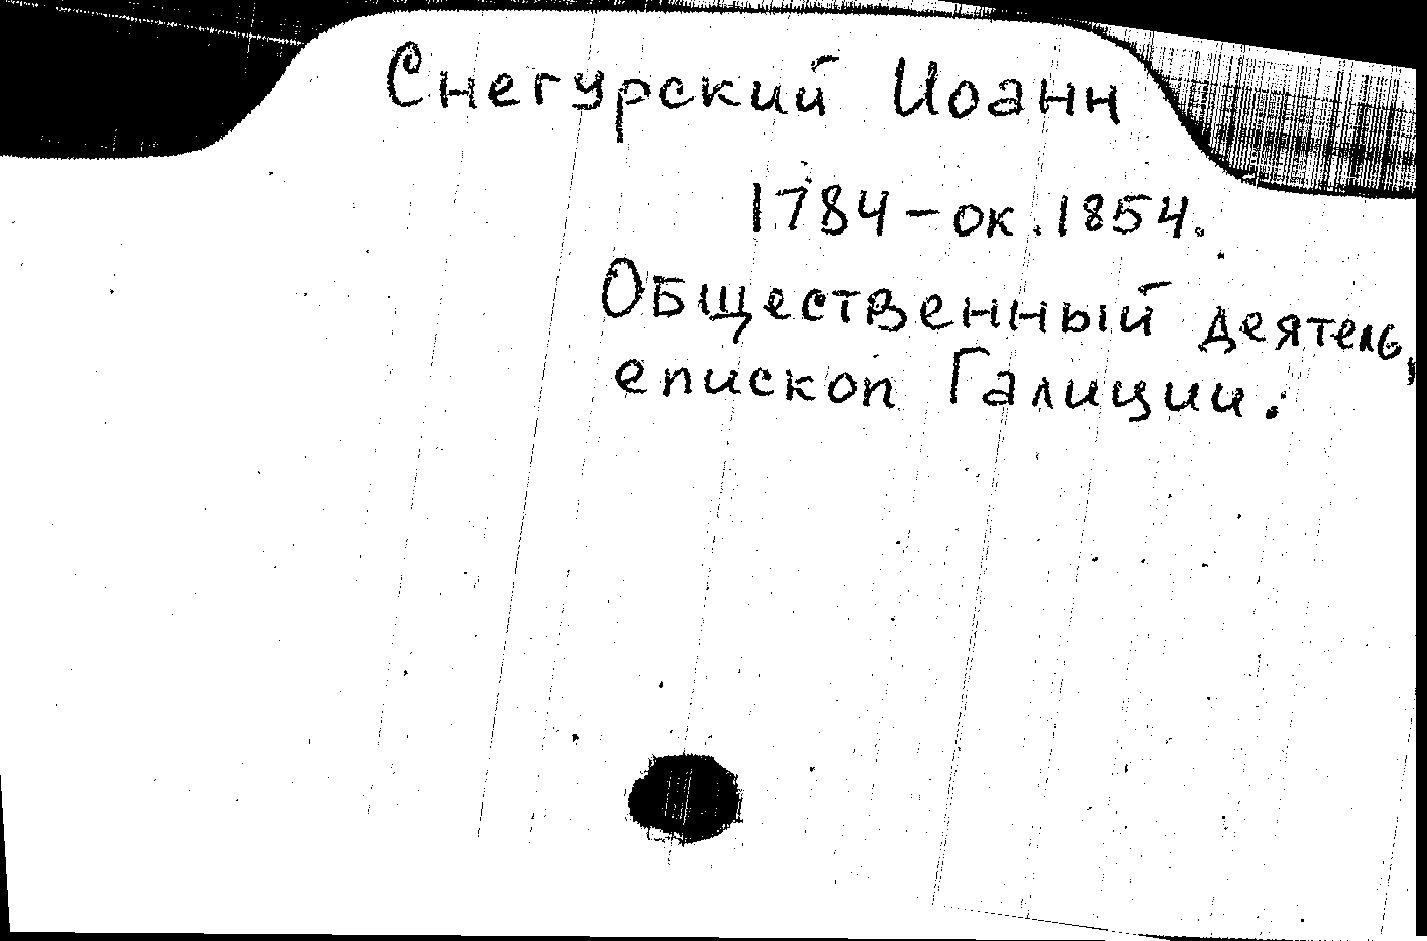 Снегурский Иоанн
1784-ок.1854.
Общественный деятель,
епископ Галиции.